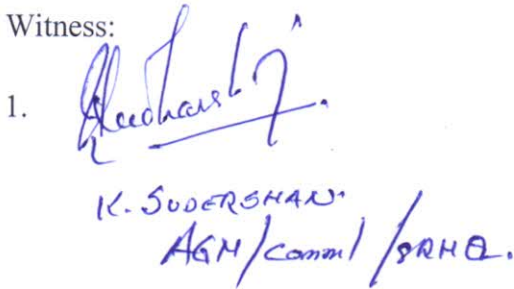 Witness:
1.
K. SUDERSHAN.
AGM/Comml/SRHQ.